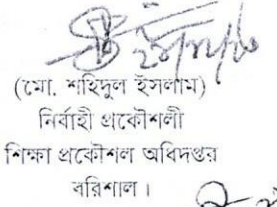 (মো. শহিদুল ইসলাম)
নির্বাহী প্রকৌশলী
শিক্ষা প্রকৌশল অধিদপ্তর
বরিশাল।